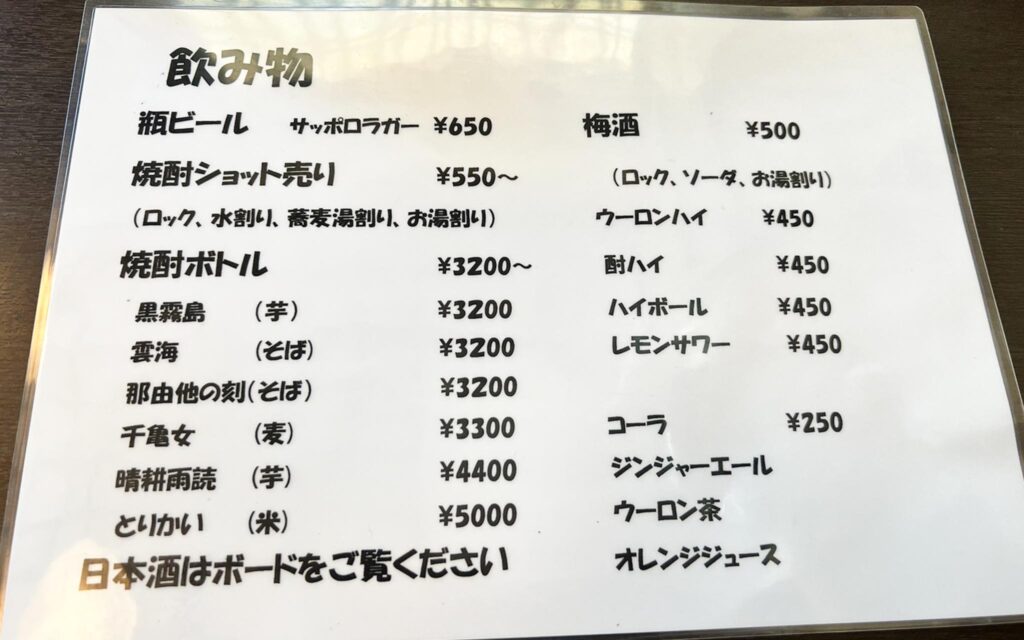 飲み物
瓶ビール サッポロラガー ¥650
焼酎ショット売り ¥550～
(ロック、水割り、蕎麦湯割り、お湯割り)
焼酎ボトル ¥3200～
黒霧島 (芋) ¥3200
雲海 (そば) ¥3200
那由他の刻(そば) ¥3200
千亀女 (麦) ¥3300
晴耕雨読 (芋) ¥4400
とりかい (米) ¥5000
日本酒はボードをご覧ください
梅酒 ¥500
(ロック、ソーダ、お湯割り)
ウーロンハイ ¥450
酎ハイ ¥450
ハイボール ¥450
レモンサワー ¥450
コーラ ¥250
ジンジャーエール
ウーロン茶
オレンジジュース